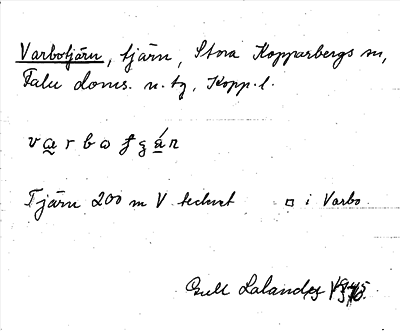 Varbotjärn, tjärn, Stora Kopparbergs sn,
Falu doms. n. tg, Kopp. l.
Tjärn 200 m V tecknet □ i Varbo
Gull Lalander